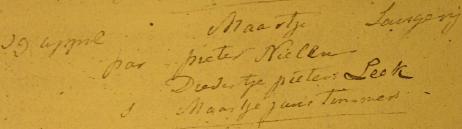 29 april Maartje
par pieter Nielen
Diedertje pieters Leek
s Maartje jans timmers